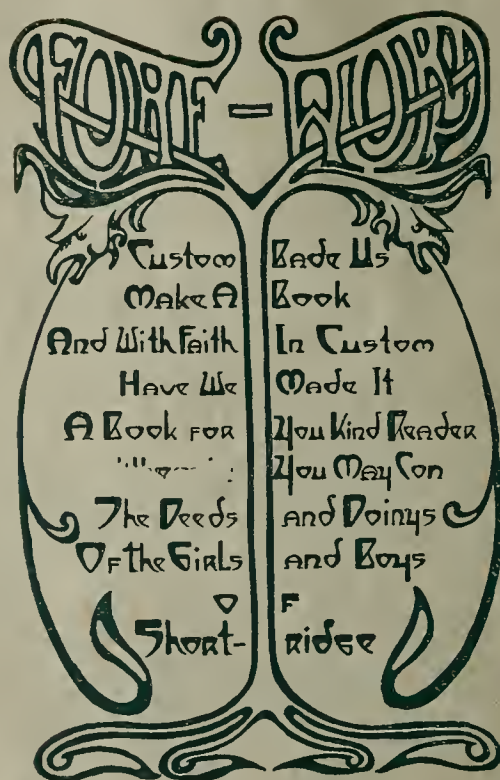 FORE-WORD
Custom Bade Us
Make A Book
And With Faith In Custom
Have We Made It
A Book for You Kind Reader
You May Con
The Deeds and Doings
Of the Girls and Boys
OF
Short-ridge